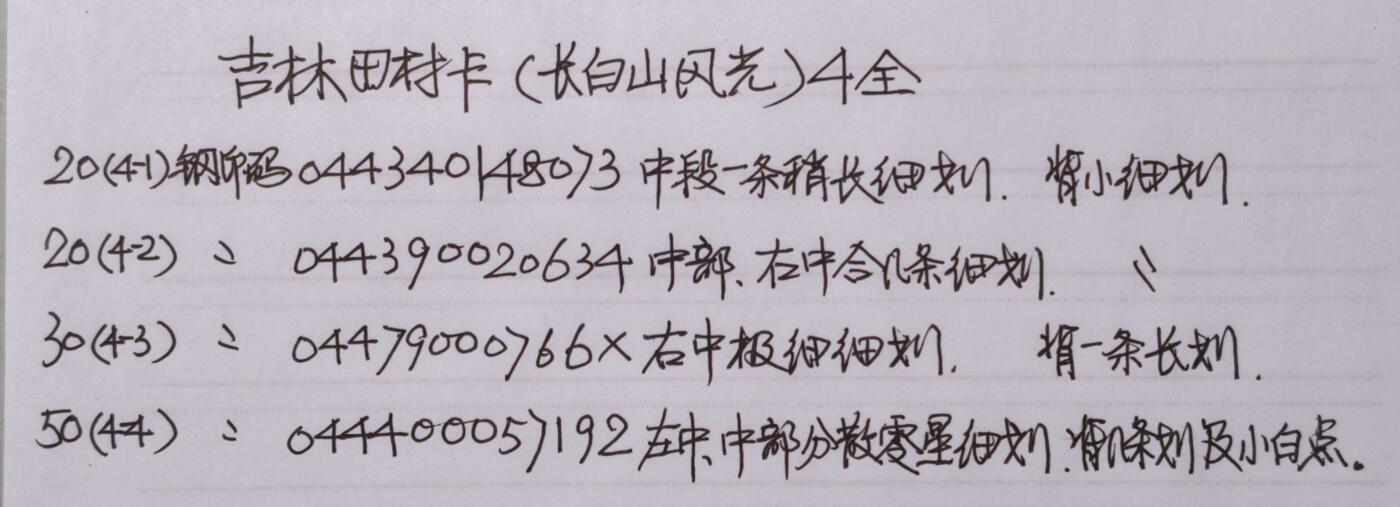 吉林田村卡(长白山风光)4全
20(4-1)钢印码044340148073中段一条稍长细划. 背小细划.
20(4-2) 〃 044390020634中部、右中含几条细划. 〃
30(4-3) 〃 04479000766×右中极细细划. 背一条长划.
50(4-4) 〃 044400057192左中、中部分散零星细划.背几条划及小白点。